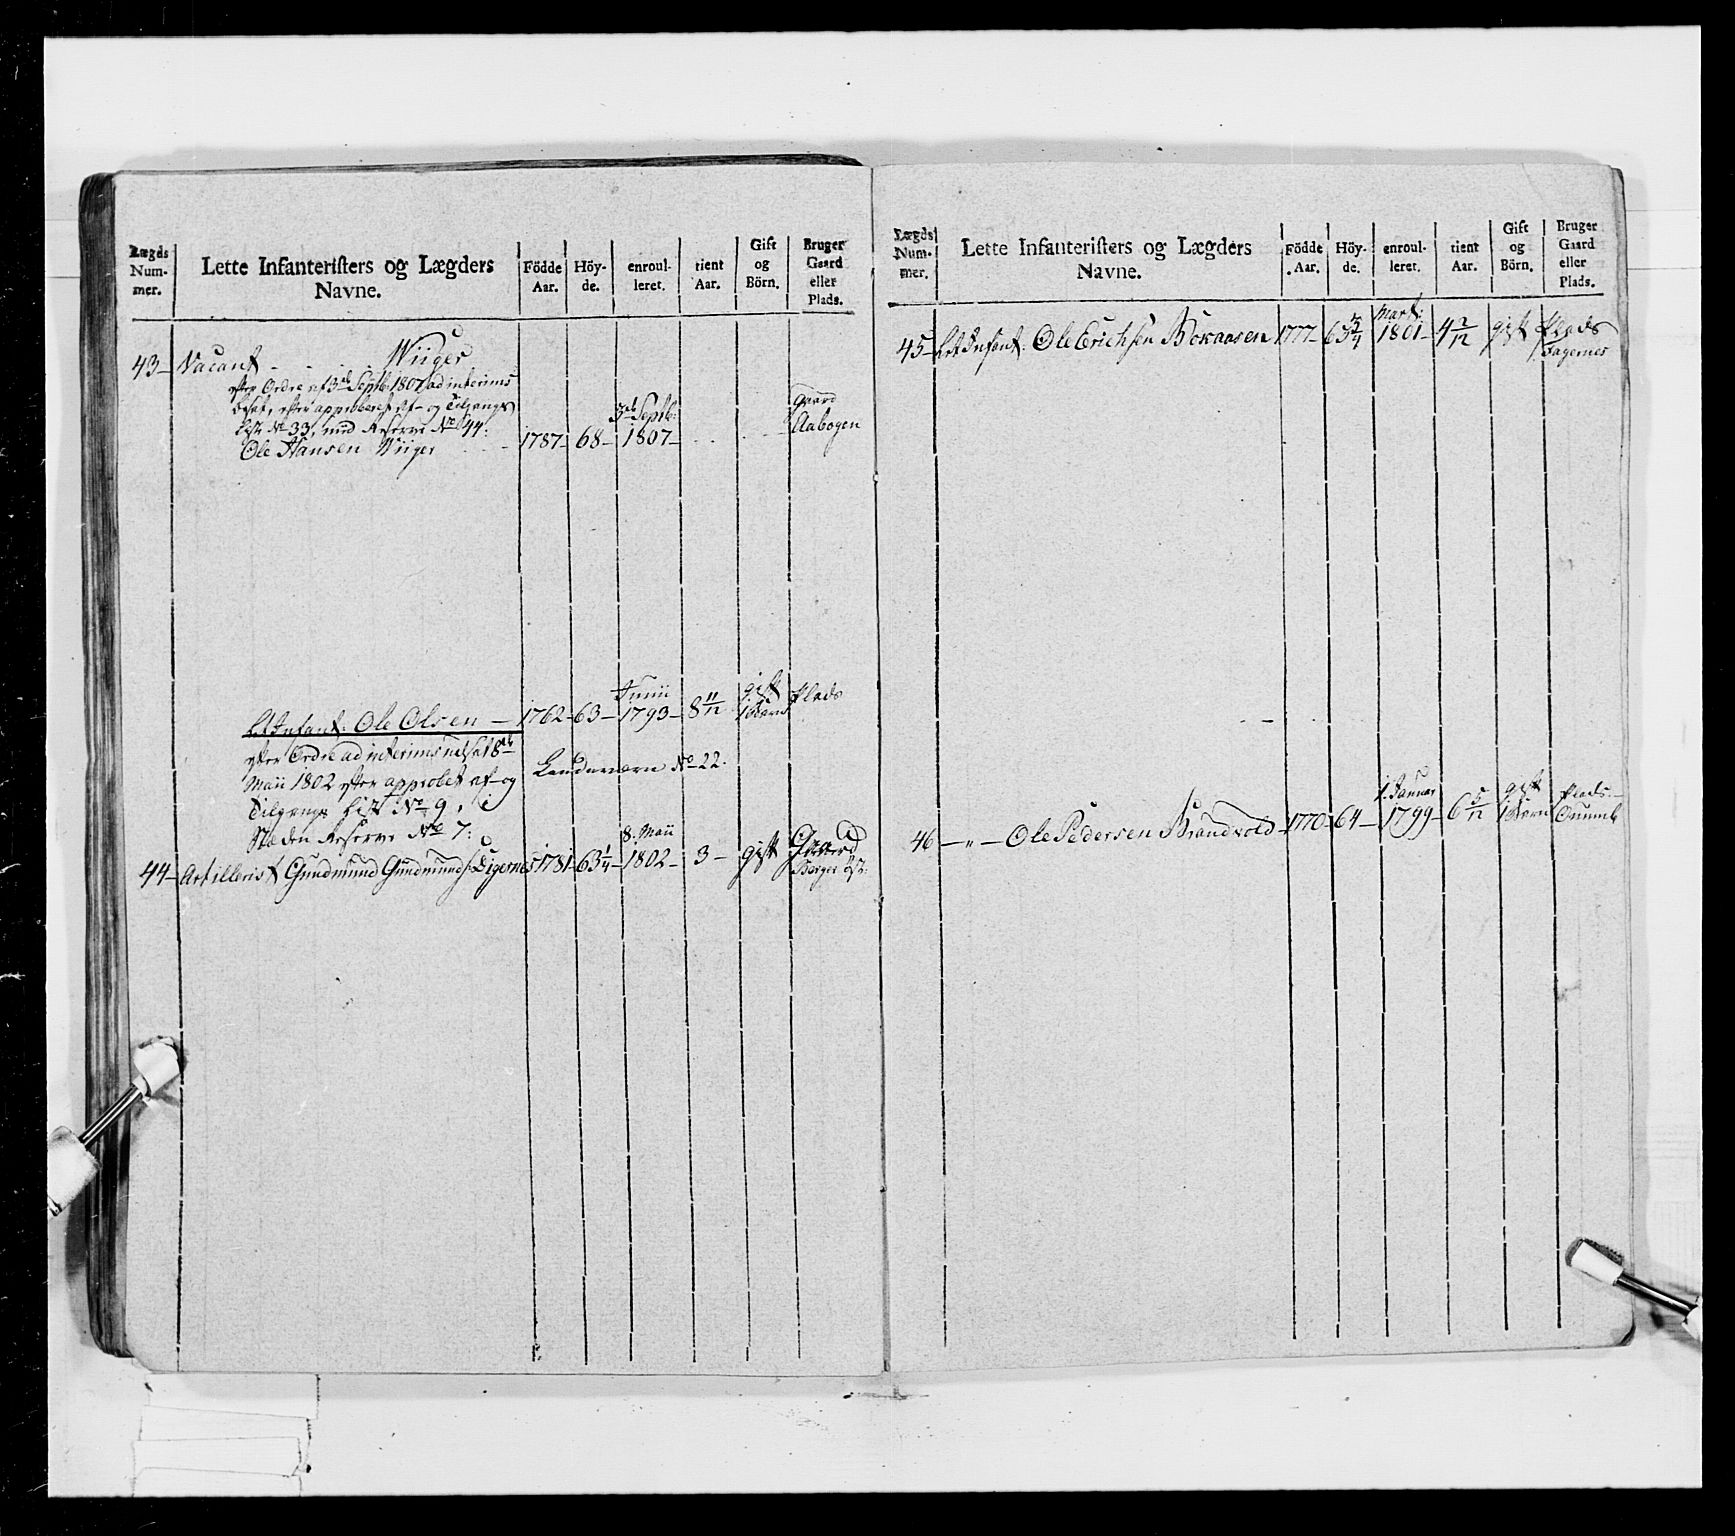 Lægds Num- mer. Lette Infanteristers og Lægders Navne. Födde Aar. Höy- de. enroul- leret. tient Aar. Gift og Börn. Bruger Gaard eller Plads.
Wiiger
43 – Vacant
efter Ordre af 3de Septb: 1807 ad interims
besat, efter approberet Af- og Tilgangs
List No 33, med Reserve No 44:
Ole Hansen Wiiger 1787 – 68 – 3de Septb: 1807 – Gaard Aabogen
Let Infant: Ole Olsen – 1762 – 63 – Junii 1793 – 8 11/12 gift 1 Barn Plads
efter Ordre ad interims udsat 8de
Maii 1802 efter approbet af- og
Tilgangs List No 9.
Landeværn No 22.
Reserve No 7:
44 – Artillerist Gundmund Gundmunds: Digernes 1781 – 63 1/4 – 8: Maii 1802 – 3 – gift Gaard Berger
Lægds Num- mer. Lette Infanteristers og Lægders Navne. Födde Aar. Höy- de. enroul- leret. tient Aar. Gift og Börn. Bruger Gaard eller Plads.
45 – Let Infant: Ole Erichsen 1777 – 63 3/4 Mart: 1801 – 4 2/12 gift Plads Fagernes
46 – „ – Ole Pedersen Brandvold – 1770 – 64 – 1. Januar 1799 – 6 5/12 gift 1 Barn Plads –